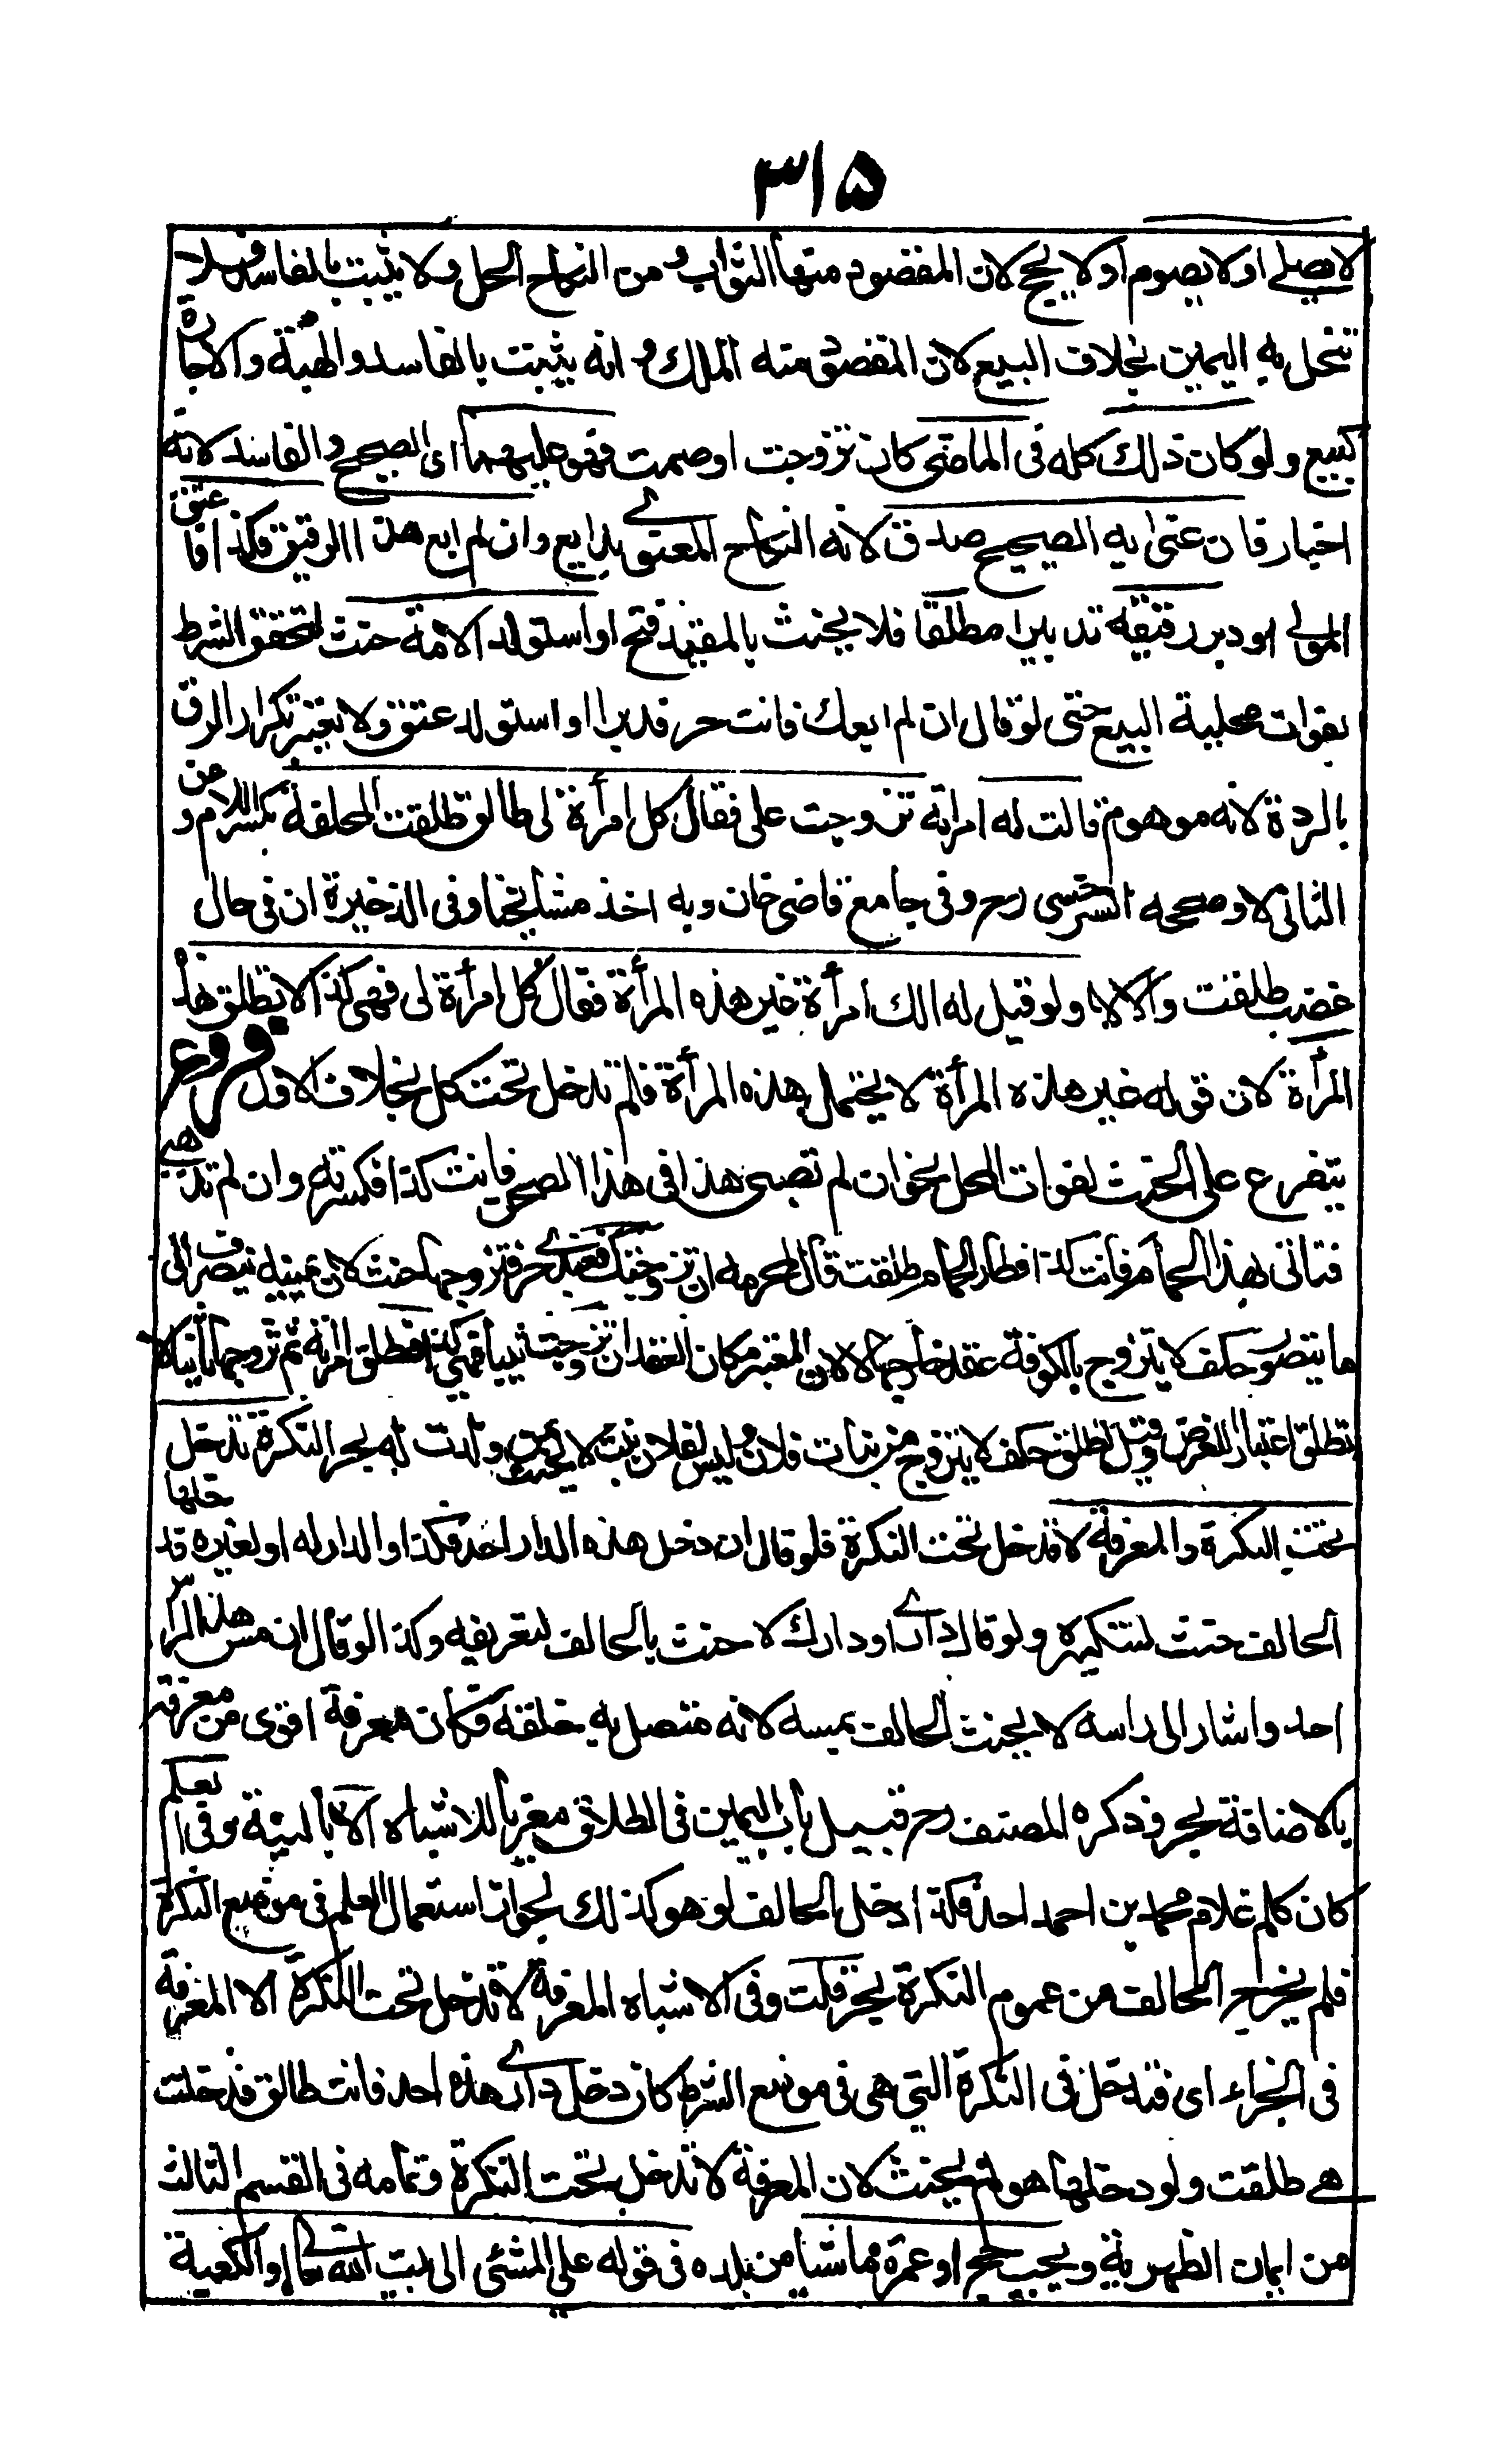 ٣١٥
لا يصلي او لا يصوم او لا يحج لان المقصود منها الثواب ومن النكاح الحل ولا يثبت بالفاسد فلا
تنحل به اليمين بخلاف البيع لان المقصود منه الملك وانه يثبت بالفاسد والهبة والاجارة
كبيع ولو كان ذلك كله في الماضي كان تزوجت او صمت فهو عليهما اى الصحيح والفاسد لانه
اخبار فان عنى به الصحيح صدق لانه النكاح المعنوى بدايع وان لم ابع هذا الرقيق فكذا فاعتق
المولى او دبر رقيقه تدبيرا مطلقا فلا يحنث بالمقيد فتح او استولد الامة حنث لتحقق الشرط
بفوات محلية البيع حتى لو قال ان لم ابعك فانت حر فدبر او استولد عتق ولا يعتبر تكرار الرق
بالردة لانه موهوم قالت له امراته تزوجت على فقال كل امرأة لى طالق طلقت المحلفة بكسر اللام وعن
الثانى لا وصححه السرخسى رح وفى جامع قاضى خان وبه اخذ مشايخنا وفى الذخيرة ان فى حال
غضب طلقت والا لا ولو قيل له الك امرأة غير هذه المرأة فقال كل امرأة لى فهى كذا لا تطلق هذه
المرأة لان قوله غير هذه المرأة لا يحتمل هذه المرأة فلم تدخل تحت كل بخلاف الاول فروع
يتفرع على الحنث لفوات المحل نحو ان لم تصبى هذا فى هذا الصحن فانت كذا فكسرته وان لم تذهبى
فتاتى بهذا الحمام فانت كذا فطار الحمام طلقت قال لمحرمه ان تزوجتك فعبدى حر فتزوجها حنث لان يمينه ينصرف الى
ما يتصور حلف لا يتزوج بالكوفة عقد خارجها لان المعتبر مكان العقد ان تزوجت ثيبا فهى كذا فطلق امراته ثم تزوجها ثانيا لا
تطلق اعتبارا للغرض وقيل تطلق حلف لا يتزوج من بنات فلان وليس لفلان بنت لا يحنث بمن ولدت له بحر النكرة تدخل
تحت النكرة والمعرفة لا تدخل تحت النكرة فلو قال ان دخل هذه الدار احد فكذا والدار له او لغيره فدخلها
الحالف حنث لتنكيره ولو قال دارى او دارك لا حنث بالحالف لتعريفه وكذا لو قال ان مس هذا الراس
احد واشار الى راسه لا يحنث الحالف بمسه لانه متصل به خلقة فكان معرفة اقوى من معرفته
بالاضافة بحر وذكره المصنف رح قبيل باب اليمين فى الطلاق معزيا للاشباه الا بالنية وفى العلم
كان كلم غلام محمد بن احمد احد فكذا دخل الحالف لو هو كذلك لجواز استعمال العلم فى موضع النكرة
فلم يخرج الحالف من عموم النكرة بحر قلت وفى الاشباه المعرفة لا تدخل تحت النكرة الا المعرفة
فى الجزاء اى فتدخل فى النكرة التى هى فى موضع الشرط كان دخل دارى هذه احد فانت طالق فدخلت
هى طلقت ولو دخلها هو لم يحنث لان المعرفة لا تدخل تحت النكرة وتمامه فى القسم الثالث
من ايمان الظهيرية ويجب حج او عمرة ماشيا من بلده فى قوله على المشى الى بيت الله تعالى او الكعبة